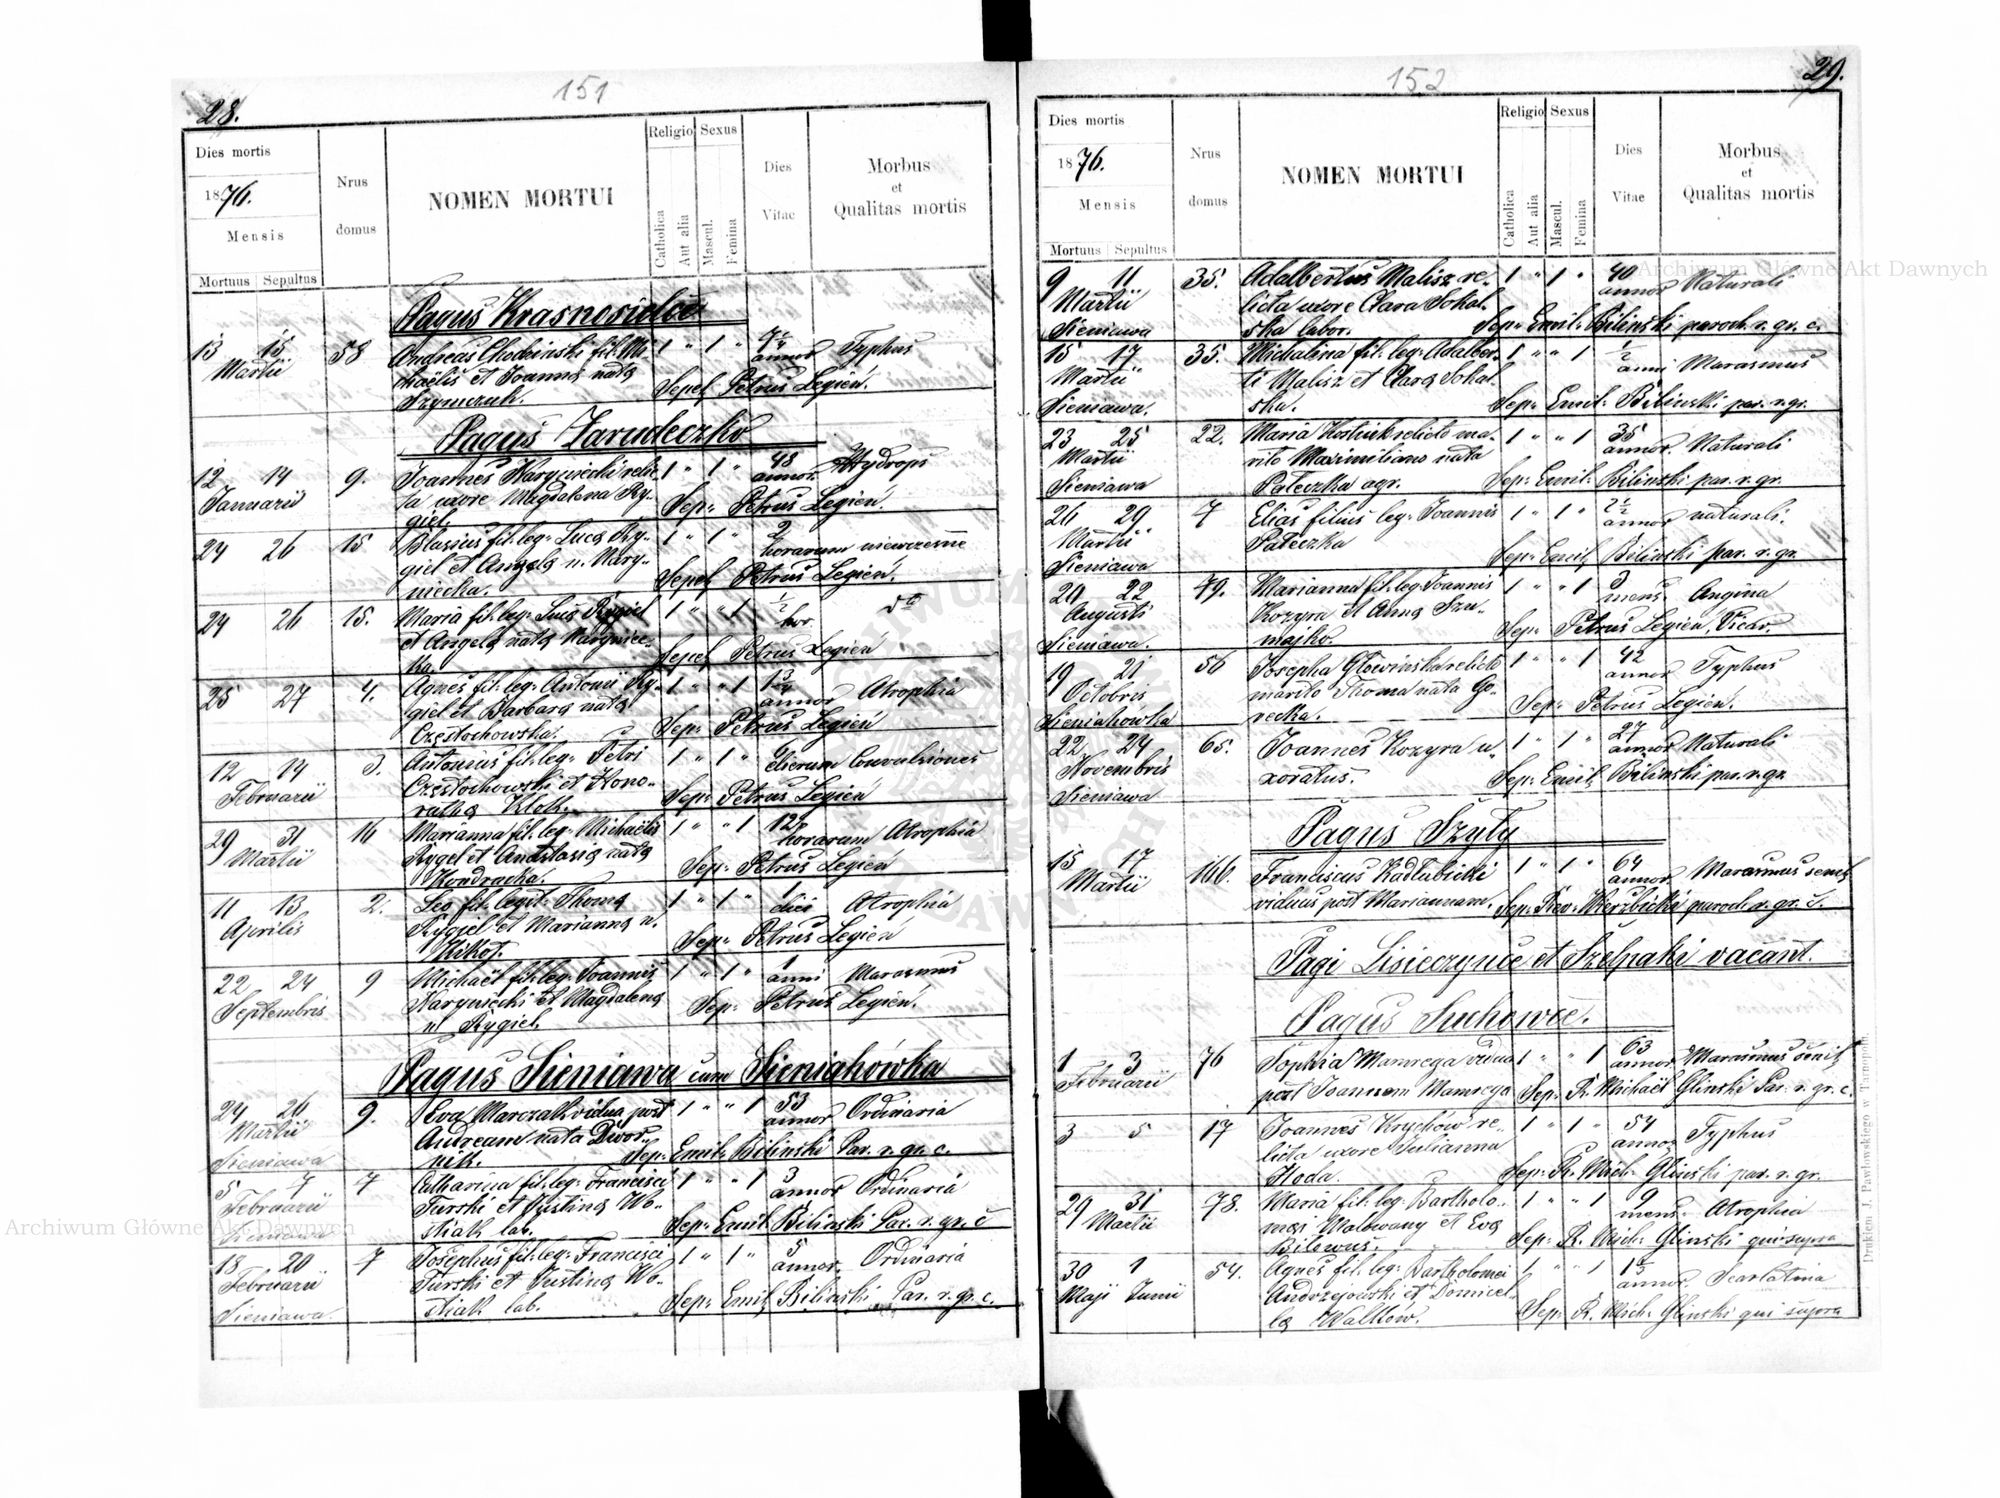 151
28.
Dies mortis
1876.
Mensis
Mortuus Sepultus
Nrus
domus
NOMEN MORTUI
Religio
Catholica
Aut alia
Sexus
Mascul.
Femina
Dies
Vitae
Morbus
et
Qualitas mortis
Pagus Krasnosielce
13 15 58 Andreas Chochinski fil. Mi- 1 " 1 " annor Typhus
Martii chaëlis et Joanna nata Sepel. Petrus Legień.
Szymczuk.
Pagus Zarudeczko
12 14 9. Joannes Naryniecki relic- 1 " 1 " 48 annor. Hydrops
Januarii ta uxore Magdalena Ry- Sep: Petrus Legień.
giel.
24 26 15 Blasius fil. leg: Luca Ry- 1 " 1 " 2 horarum niewczesne
giel et Angela n. Nary- Sepel. Petrus Legień.
niecka.
24 26 15. Maria fil. leg: Luca Rygiel 1 " " 1 1/2 hor. dto
et Angela nata Naryniec- Sepel. Petrus Legień
ka.
25 27 4. Agnes fil. leg: Antonii Ry- 1 " " 1 1 3/4 annor Atrophia
giel et Barbara nata Sep: Petrus Legień
Częstochowska.
12 14 3. Antonius fil. leg: Petri 1 " 1 " dierum Convulsiones
Februarii Częstochowski et Hono- Sep: Petrus Legień
ratha Kloh.
29 31 16 Marianna fil. leg: Michaëlis 1 " " 1 12 horarum Atrophia
Martii Rygel et Anastasia nata Sep: Petrus Legień
Kondracka.
11 13 2. Leo fil. legit: Thoma 1 " 1 " 1 diei Atrophia
Aprilis Rygiel et Marianna n. Sep: Petrus Legień
Kikot.
22 24 9 Michaël fil. leg: Joannis 1 " 1 " 1 anni Marasmus
Septembris Naryniecki et Magdalena Sep: Petrus Legień.
n. Rygiel.
Pagus Sieniawa cum Sieniahówka
24 26 9. Eva Marczak vidua post 1 " " 1 53 annor Ordinaria
Martii Andream nata Dwor-
Sieniawa nik. Sep: Emil: Bilinski Par. r. gr. c.
5 7 7 Catharina fil. leg: Francisci 1 " " 1 3 annor Ordinaria
Februarii Turski et Justina Wo-
Sieniawa stiak lab. Sep: Emil Bilinski Par. r. gr. c
18 20 7 Josephus fil. leg: Francisci 1 " 1 " 5 annor. Ordinaria
Februarii Turski et Justina Wo-
Sieniawa. stiak lab. Sep: Emil. Bilinski Par. r. gr. c.
152
29.
Dies mortis
1876.
Mensis
Mortuus Sepultus
Nrus
domus
NOMEN MORTUI
Religio
Catholica
Aut alia
Sexus
Mascul.
Femina
Dies
Vitae
Morbus
et
Qualitas mortis
9 11 35. Adalbertus Malisz re- 1 " 1 " 40 annor Naturali
Martii licta uxore Clara Sokal-
Sieniawa ska labor. Sep: Emil: Bilinski paroch. r. gr. c.
15 17 35. Michalina fil: leg: Adalber- 1 " " 1 1/2 anni Marasmus
Martii ti Malisz et Clara Sokal-
Sieniawa. ska. Sep: Emil: Bilinski par. r. gr.
23 25 22. Maria Kostiuk relicto ma- 1 " " 1 35 annor. Naturali
Martii rito Maximiliano nata
Sieniawa Pateczka agr. Sep: Emil: Bilinski par. r. gr.
26 29 7 Elias filius leg: Joannis 1 " 1 " 2 1/2 annor naturali.
Martii Pateczka
Sieniawa Sep: Emil. Bilinski par. r. gr.
20 22 79. Marianna fil. leg. Joannis 1 " " 1 3 mens. Angina
Augusti Kozyra et Anna Szu- Sep: Petrus Legień, Vicar.
Sieniawa. majko.
19 21 56 Josepha Głowinska relicto 1 " " 1 42 annor Typhus
Octobris marito Thoma nata Go- Sep: Petrus Legień.
Sieniahówka recka.
22 24 65. Joannes Kozyra u- 1 " 1 " 27 annor Naturali
Novembris xoratus. Sep: Emil. Bilinski par. r. gr
Sieniawa
Pagus Szyły
15 17 166. Franciscus Kadłubicki 1 " 1 " 64 annor Marasmus senil.
Martii viduus post Mariannam. Sep: Rev. Wierzbicki paroch r. gr. c.
Pagi Lisieczynce et Szelpaki vacant.
Pagus Suchowce.
1 3 76 Sophia Mamrega vidua 1 " " 1 63 annor Marasmus senil.
Februarii post Joannem Mamrega Sep: R. Michaël Glinski Par. r. gr. c.
3 5 17 Joannes Krychów re- 1 " 1 " 54 annor Typhus
licta uxore Julianna Sep: R. Mich: Glinski par. r. gr.
Hoda.
29 31 78. Maria fil. leg: Bartholo- 1 " " 1 9 mens. Atrophia
Martii maei Malowany et Eva Sep: R. Mich: Glinski qui supra
Bilewus.
30 1 54. Agnes fil: leg: Bartholomei 1 " " 1 annor. Scarlatina
Maji Junii Andrzejowski et Domicel-
la Walków. Sep: R. Mich: Glinski qui supra
Drukiem J. Pawłowskiego w Tarnopolu.
Archiwum Główne Akt Dawnych
Archiwum Główne Akt Dawnych